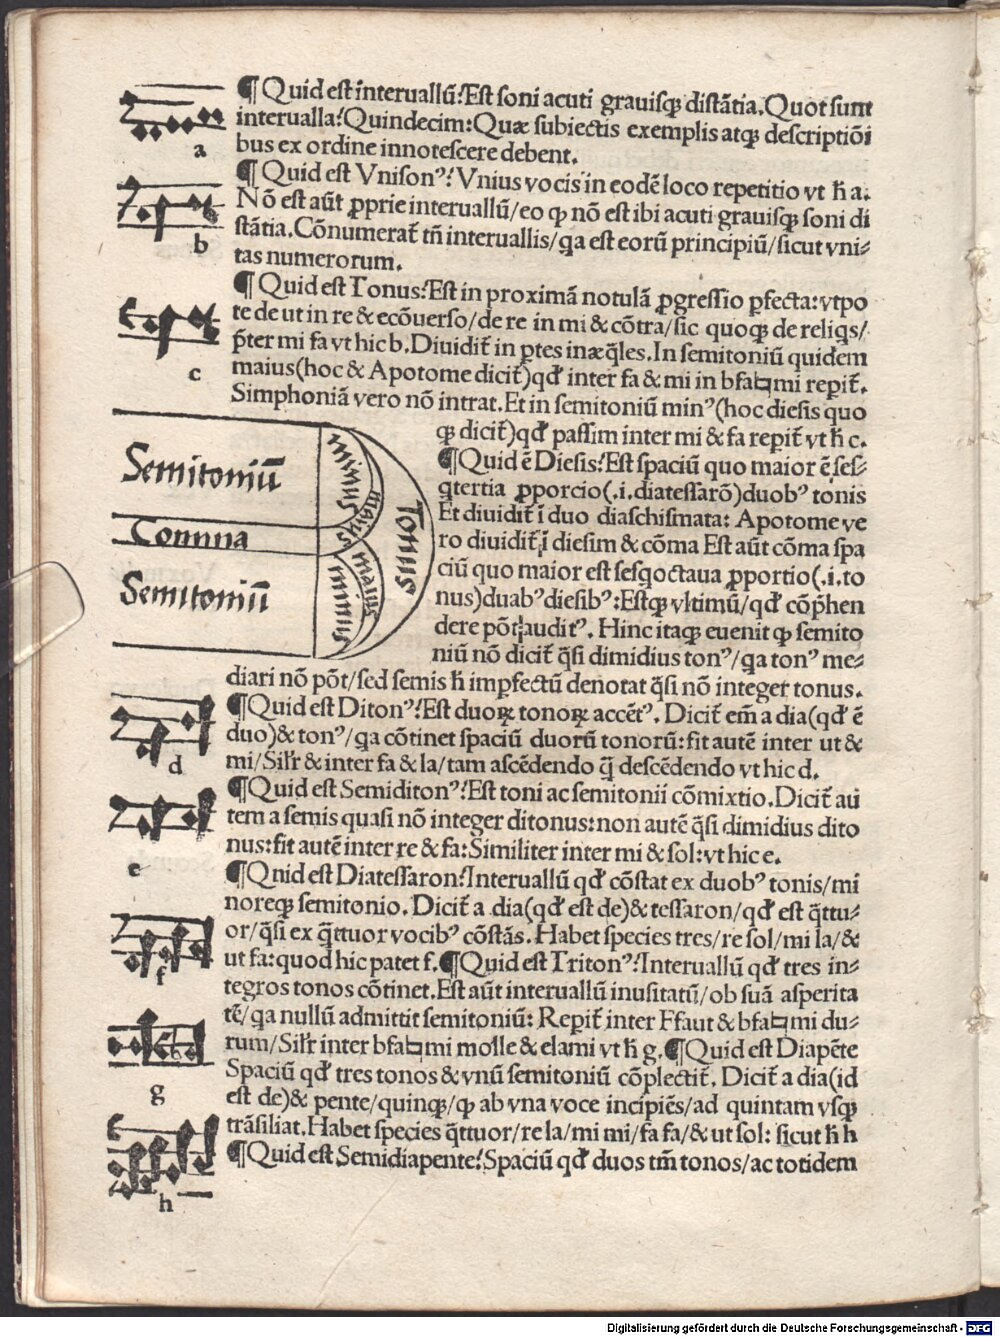 ¶ Quid est interuallũ? Est soni acuti grauisqꝫ distãtia. Quot sunt
interualla? Quindecim: Quæ subiectis exemplis atqꝫ descriptiõi
bus ex ordine innotescere debent.
a
¶ Quid est Vnisonꝰ? Vnius vocis in eodẽ loco repetitio vt h̃ a.
Nõ est aũt ꝓprie interuallũ/eo ꝙ nõ est ibi acuti grauisqꝫ soni di
stãtia. Cõnumerat̃ tñ interuallis/qa est eorũ principiũ/sicut vni⸗
b
tas numerorum.
¶ Quid est Tonus? Est in proximã notulã ꝓgressio ꝑfecta: vtpo
te de ut in re & ecõuerso/de re in mi & cõtra/sic quoqꝫ de reliqs/
p̃ter mi fa vt hic b. Diuidit̃ in ꝑtes inæq̃les. In semitoniũ quidem
c
maius(hoc & Apotome dicit̃)qđ inter fa & mi in bfa♮mi reꝑit̃.
Simphoniã vero nõ intrat. Et in semitoniũ minꝰ(hoc diesis quo
qꝫ dicit̃)qđ passim inter mi & fa reꝑit̃ vt h̃ c.
Semitoniũ
Comma
Semitoniũ
minus
maius
maius
minus
Tonus
¶Quid ẽ Diesis? Est spaciũ quo maior ẽ ses⸗
qtertia ꝓporcio(.i. diatessarõ)duobꝰ tonis
Et diuidit̃ ĩ duo diaschismata: Apotome ve
ro diuidit̃ ĩ diesim & cõma Est aũt cõma spa
ciũ quo maior est sesqoctaua ꝓportio(.i. to
nus)duabꝰ diesibꝰ: Estqꝫ vltimũ/qđ cõp̃hen
dere põt auditꝰ. Hinc itaqꝫ euenit ꝙ semito
niũ nõ dicit̃ q̃si dimidius tonꝰ/qa tonꝰ me⸗
diari nõ põt/sed semis h̃ imꝑfectũ denotat q̃si nõ integer tonus.
¶Quid est Ditonꝰ? Est duoꝝ tonoꝝ accẽtꝰ. Dicit̃ em̃ a dia(qđ ẽ
duo)& tonꝰ/qa cõtinet spaciũ duorũ tonorũ: fit autẽ inter ut &
d
mi/Silr̃ & inter fa & la/tam ascẽdendo q̃ descẽdendo vt hic d.
¶Quid est Semiditonꝰ? Est toni ac semitonii cõmixtio. Dicit̃ au
tem a semis quasi nõ integer ditonus: non autẽ q̃si dimidius dito
nus: fit autẽ inter re & fa: Similiter inter mi & sol: vt hic e.
e
¶Qnid est Diatessaron? Interuallũ qđ cõstat ex duobꝰ tonis/mi
noreqꝫ semitonio. Dicit̃ a dia(qđ est de)& tessaron/qđ est q̃ttu⸗
or/q̃si ex q̃ttuor vocibꝰ cõstãs. Habet species tres/re sol/mi la/&
ut fa: quod hic patet f. ¶Quid est Tritonꝰ? Interuallũ qđ tres in⸗
f
tegros tonos cõtinet. Est aũt interuallũ inusitatũ/ob suã asperita
tẽ/qa nullũ admittit semitoniũ: Reꝑit̃ inter Ffaut & bfa♮mi du⸗
rum/Silr̃ inter bfa♮mi molle & elami vt h̃ g. ¶Quid est Diapẽte
Spaciũ qđ tres tonos & vnũ semitoniũ cõplectit̃. Dicit̃ a dia(id
g
est de)& pente/quinqꝫ/ꝙ ab vna voce incipiẽs/ad quintam vsqꝫ
trãsiliat. Habet species q̃ttuor/re la/mi mi/fa fa/& ut sol: sicut h̃ h
¶Quid est Semidiapente? Spaciũ qđ duos tm̃ tonos/ac totidem
h
Digitalisierung gefördert durch die Deutsche Forschungsgemeinschaft - DFG